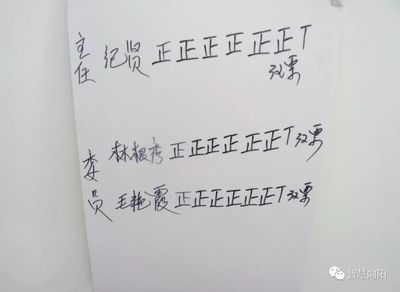 主任 纪贤 正正正正正正T
32票
委员 林根秀 正正正正正正T 32票
毛艳霞 正正正正正正T 32票
智慧向阳